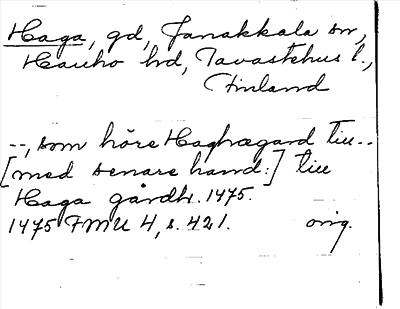 Haga, gd, Janakkala sn,
Hauho hd, Tavastehus l.,
Finland
--, som höre Haghagard till--
[med senare hand:] till
Haga gårdh. 1475.
1475 FMU 4, s. 421. orig.